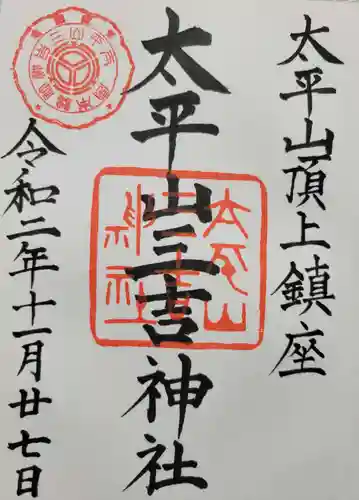 太平山頂上鎮座
太平山三吉神社
令和二年十一月廿七日